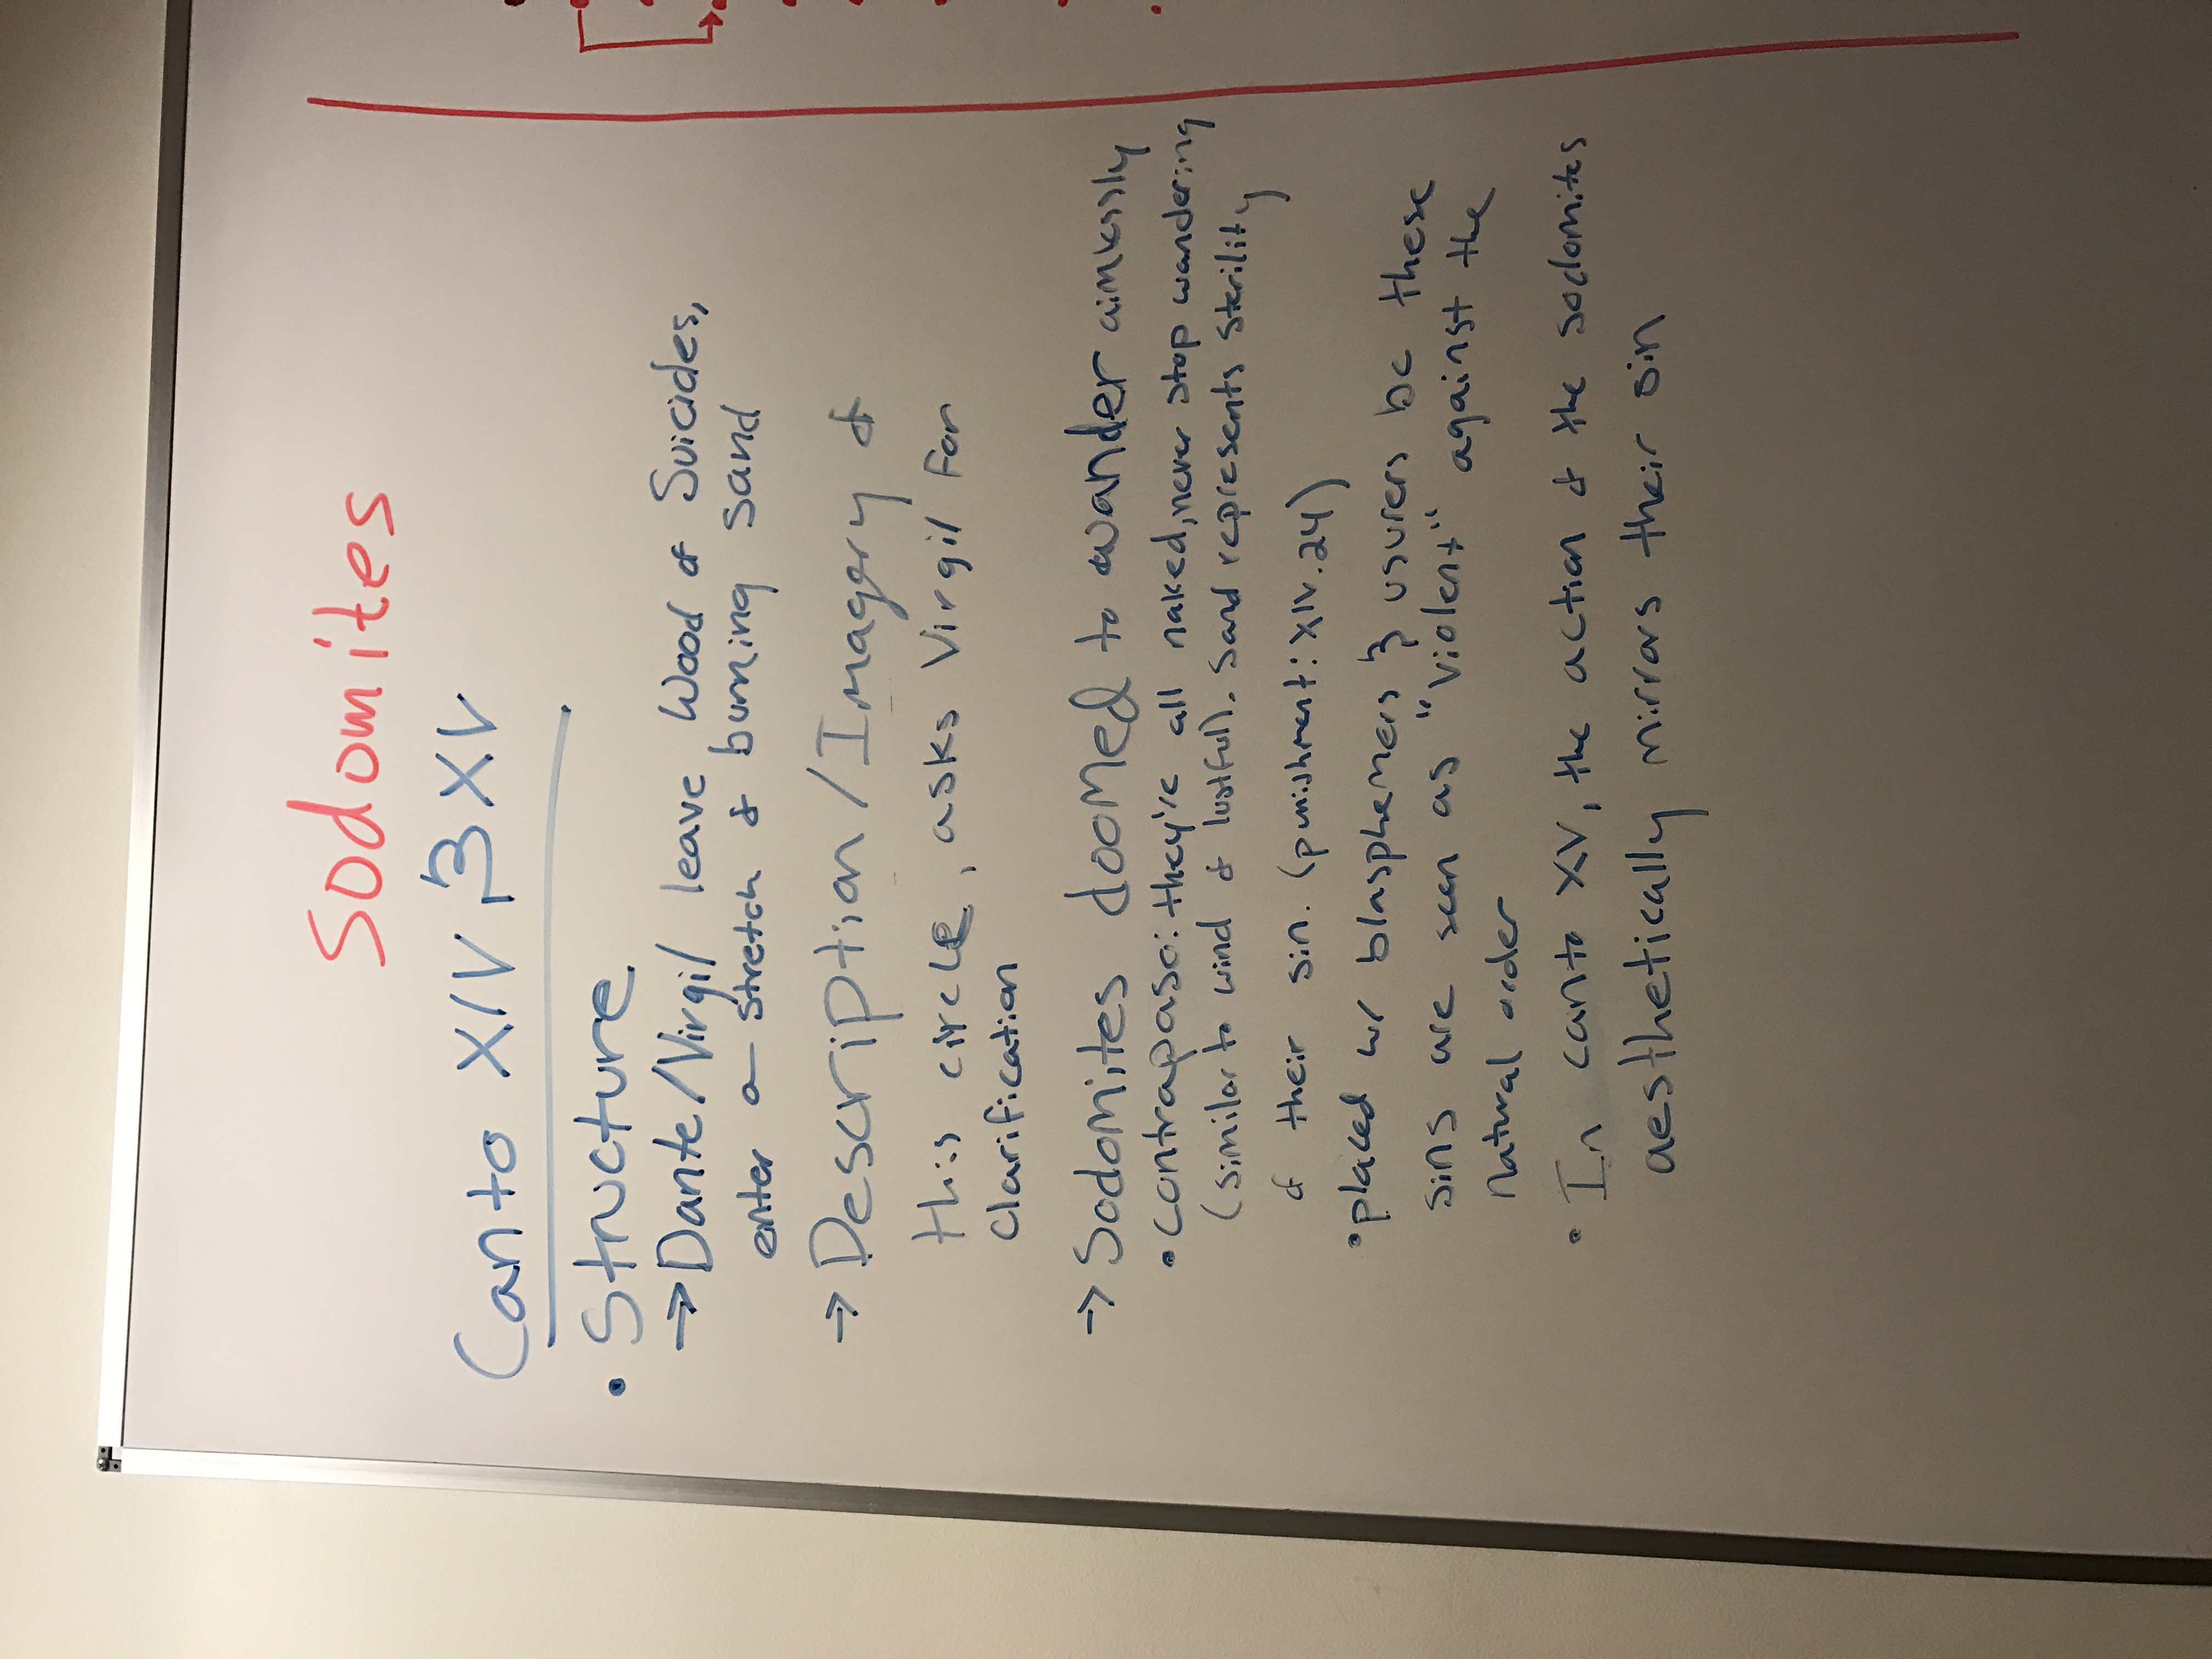 Sodomites
Canto XIV & XV
• Structure
→ Dante/Virgil leave Wood of Suicides,
enter a stretch of burning sand
→ Description/Imagery of
this circle, asks Virgil for
clarification
→ Sodomites doomed to wander aimlessly
• contrapaso: they're all naked, never stop wandering
(similar to wind of lustful). Sand represents sterility
of their sin. (punishment: XIV.24)
• placed w/ blasphemers & usurers bc these
sins are seen as "violent" against the
natural order
• In canto XV, the action of the sodomites
aesthetically mirrors their sin